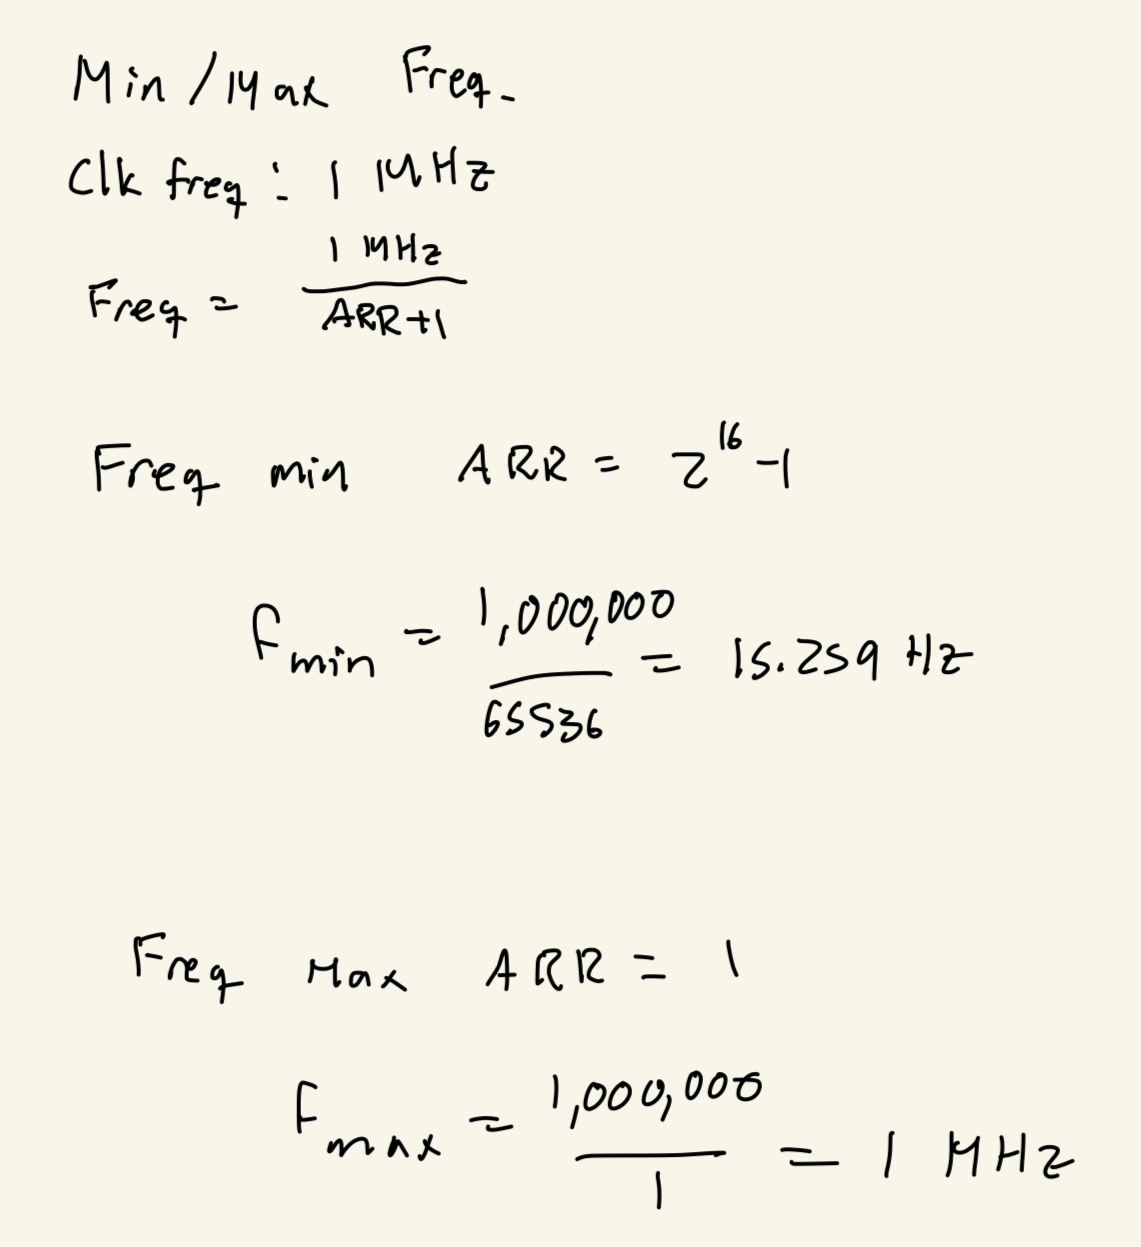 Min/Max Freq.
Clk freq: 1 MHz
Freq = 1 MHz / ARR+1
Freq min ARR = 2^16 -1
fmin = 1,000,000 / 65536 = 15.259 Hz
Freq Max ARR = 1
fmax = 1,000,000 / 1 = 1 MHz